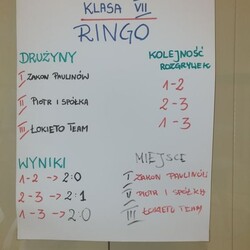 KLASA VII
RINGO
DRUŻYNY
I ZAKON PAULINÓW
II PIOTR I SPÓŁKA
III ŁOKIETO TEAM
KOLEJNOŚĆ
ROZGRYWEK
1-2
2-3
1-3
WYNIKI
1-2 -> 2:0
2-3 -> 2:1
1-3 -> 2:0
MIEJSCE
I ZAKON PAULINÓW
II PIOTR I SPÓŁKA
III ŁOKIETO TEAM